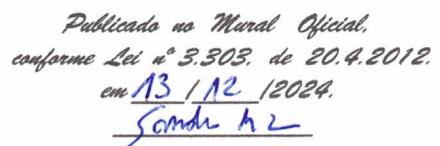 Publicado no Mural Oficial,
conforme Lei nº 3.303, de 20.4.2012.
em 13 / 12 /2024.